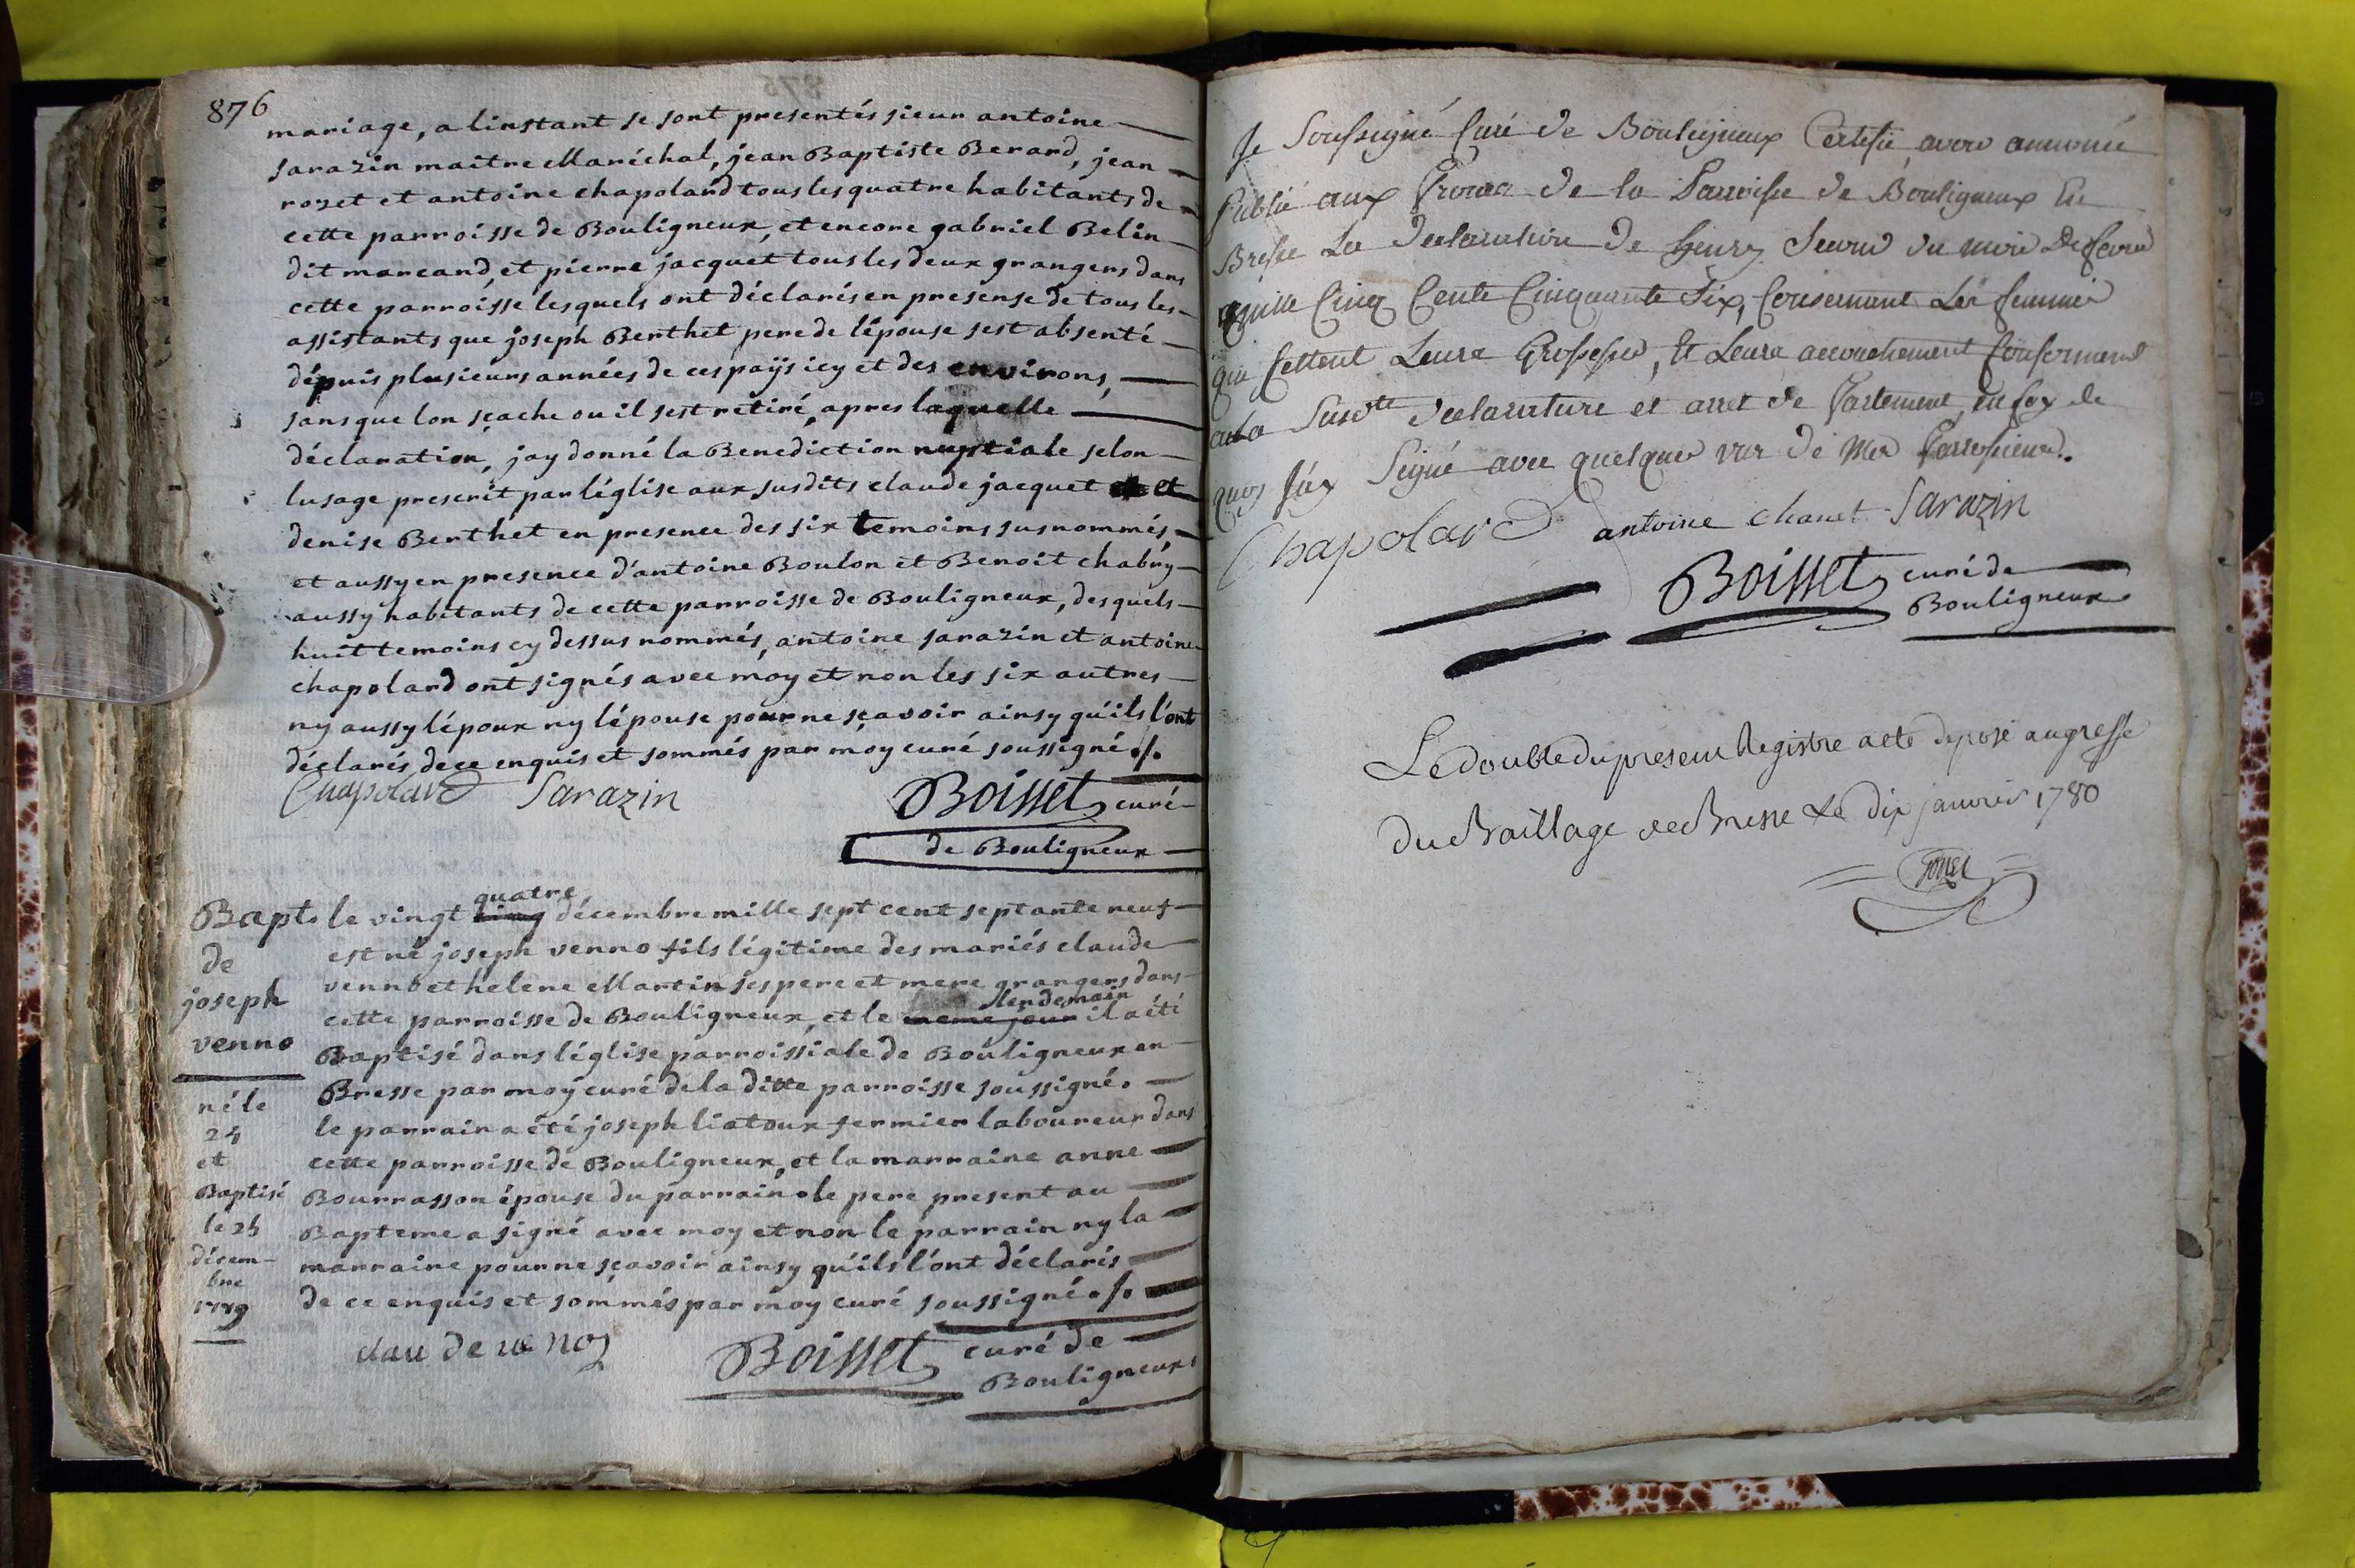 876
mariage, a linstant se sont presentés sieur antoine
sarazin maitre Maréchal, jean Baptiste Berard, jean
rozet et antoine chapoland tous les quatre habitants de
cette parroisse de Bouligneux, et encore gabriel Belin
dit marcand, et pierre jacquet tous les deux grangers dans
cette parroisse lesquels ont déclarés en presense de tous les
assistants que joseph Berthet pere de lépouse sest absenté
dépuis plusieurs années de ces païs icy et des environs,
sans que lon sçache ou il sest retiré, apres laquelle
déclaration, jay donné la Benediction nuptiale selon
lusage prescrit par léglise aux susdits claude jacquet et
denise Berthet en presence des six temoins susnommés,
et aussy en presence d'antoine Boulon et Benoit chabry
aussy habitants de cette parroisse de Bouligneux, desquels
huit temoins cy dessus nommés, antoine sarazin et antoine
chapoland ont signés avec moy et non les six autres
ny aussy lépoux ny lépouse pour ne sçavoir ainsy qu'ils l'ont
déclarés de ce enquis et sommés par moy curé soussigné ./.
Chapolard Sarazin Boisset curé
de Bouligneux
Bapt. le vingt cinq quatre décembre mille sept cent septante neuf
de est né joseph venno fils légitime des mariés claude
joseph venno et helene Martin ses pere et mere grangers dans
cette parroisse de Bouligneux, et le meme jour lendemain il a été
venno Baptisé dans léglise parroissiale de Bouligneux en
Bresse par moy curé de la ditte parroisse soussigné.
né le
24 le parrain a été joseph liatoux fermier laboureur dans
et cette parroisse de Bouligneux, et la marraine anne
Baptisé Bourrasson épouse du parrain. le pere present au
le 25 Bapteme a signé avec moy et non le parrain ny la
décem- marraine pour ne sçavoir ainsy qu'ils l'ont déclarés
bre
1779 de ce enquis et sommés par moy curé soussigné ./.
clau de ve noz Boisset curé de
Bouligneux
Je Soussigné Curé de Bouligneux Certifie avoir annoncé
publié aux Prones de la Parroisse de Bouligneux En
Bresse La declaration de henry Second du mois De fevrier
mille Cinq Cents Cinquante Six, Concernant Les femmes
qui Cellent Leurs Grossesses, Et Leurs accouchement Conformement
a la Susdte declarature et arret de Parlement, en foy de
quoy Jay Signé avec quelques uns de Mes Parroissiens.
Chapolard antoine chanet Sarazin
Boisset curé de
Bouligneux
Le double du present Registre a eté deposé au greffe
du Baillage de Bresse Le dix janvier 1780